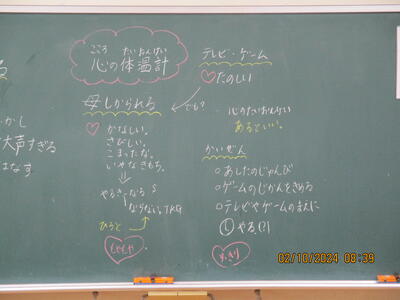 る
かし
大声すぎる
はなす
こころ たいおんけい
心の体温計
母しかられる
かなしい。
さびしい。
こまったな。
いやなきもち。
やるき なる
ならない。TKG
ひろと
もやもや
テレビ・ゲーム
たのしい
でも?
心のたいおんけい
あるといい。
かいぜん
○あしたのじゅんび
○ゲームのじかんをきめる
○テレビやゲームのまえに
やる!?!
すっきり
02/10/2024 08:39